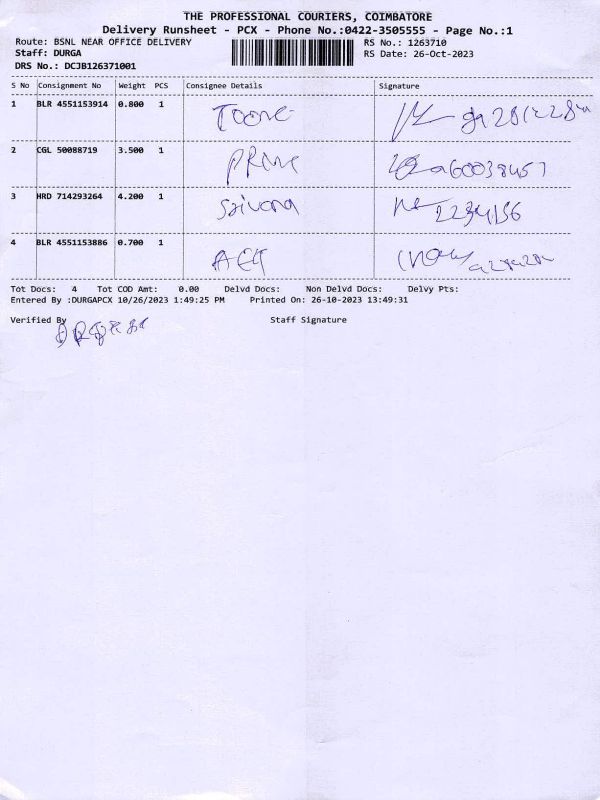 THE PROFESSIONAL COURIERS, COIMBATORE
Delivery Runsheet - PCX - Phone No.:0422-3505555 - Page No.:1
Route: BSNL NEAR OFFICE DELIVERY RS No.: 1263710
Staff: DURGA RS Date: 26-Oct-2023
DRS No.: DCJB126371001
S No Consignment No Weight PCS Consignee Details Signature
1 BLR 4551153914 0.800 1
2 CGL 50088719 3.500 1
3 HRD 714293264 4.200 1
4 BLR 4551153886 0.700 1
Tot Docs: 4 Tot COD Amt: 0.00 Delvd Docs: Non Delvd Docs: Delvy Pts:
Entered By :DURGAPCX 10/26/2023 1:49:25 PM Printed On: 26-10-2023 13:49:31
Verified By Staff Signature